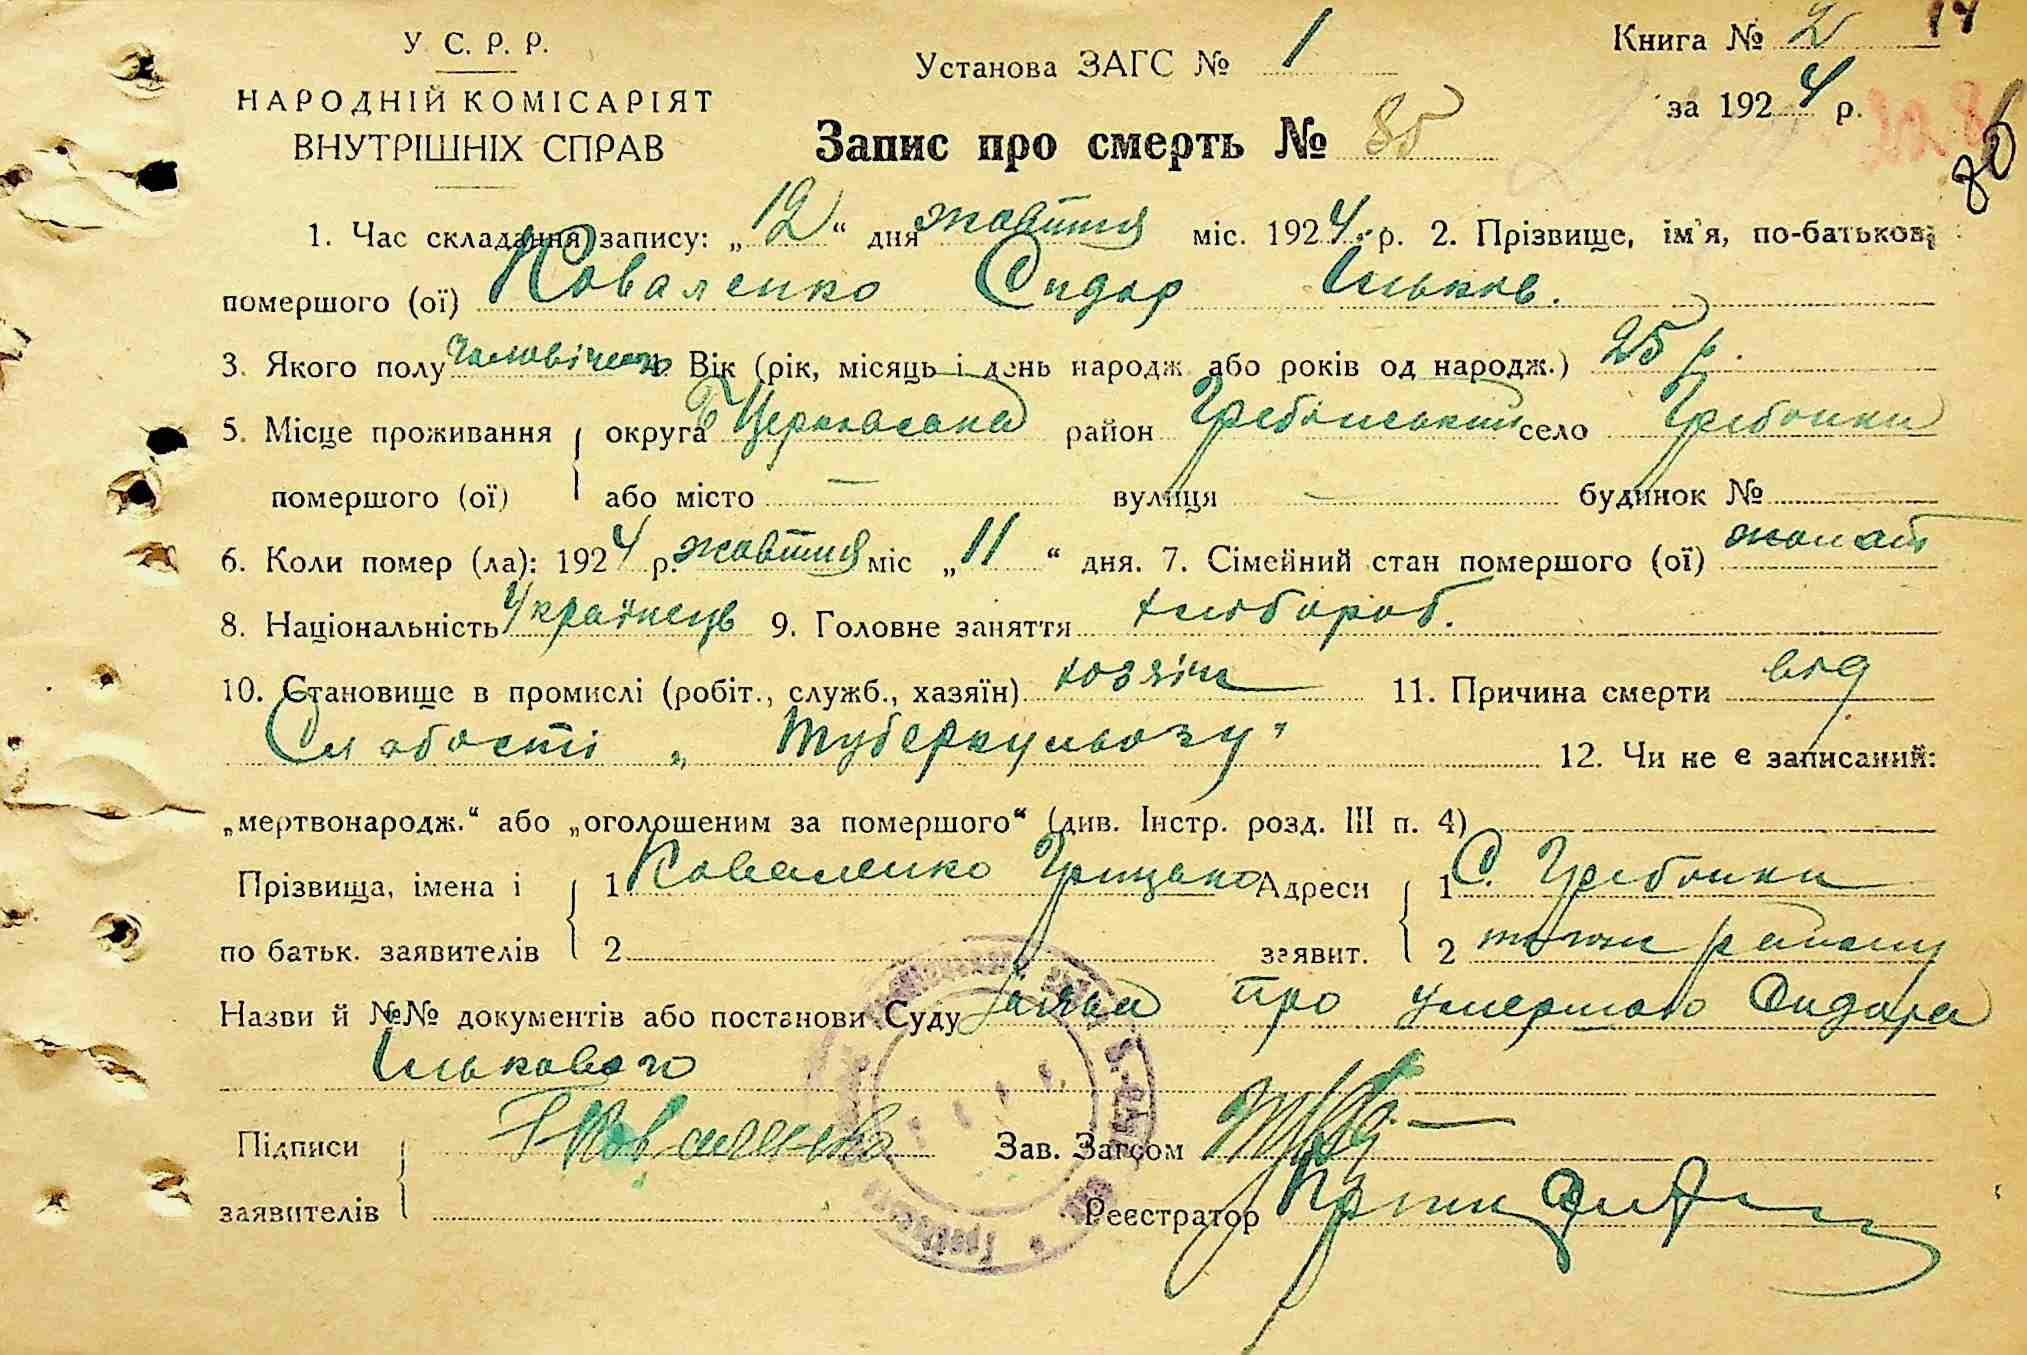 У. С. Р. Р.
НАРОДНІЙ КОМІСАРІЯТ
ВНУТРІШНІХ СПРАВ
Установа ЗАГС № 1
Книга № 2 14
за 1924 р.
Запис про смерть № 85
86
1. Час складання запису: „12“ дня жовтня міс. 1924 р. 2. Прізвище, ім'я, по-батькові
помершого (ої) Коваленко Сидор Ільков.
3. Якого полу чоловічого Вік (рік, місяць і день народж. або років од народж.) 25 р.
5. Місце проживання округа Б Церківська район Гребінський село Гребінки
помершого (ої) або місто — вулиця — будинок №
6. Коли помер (ла): 1924 р. жовтня міс „11“ дня. 7. Сімейний стан помершого (ої) жонат
8. Національність Українець 9. Головне заняття хлібороб.
10. Становище в промислі (робіт., служб., хазяїн) хозяін 11. Причина смерти від
Слабости „Туберкульозу“ 12. Чи не є записаний:
„мертвонародж.“ або „оголошеним за помершого“ (див. Інстр. розд. III п. 4)
Прізвища, імена і 1 Коваленко Грицько Адреси 1 С. Гребінки
по батьк. заявителів 2 заявит. 2 того ж району
Назви й №№ документів або постанови Суду Заява про умершого Сидора
Ількового
Підписи Г Коваленко Зав. Загсом
заявителів Реєстратор